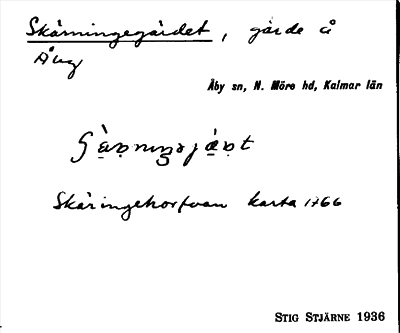 Skärningegärdet, gärde å
Åby sn, N. Möre hd, Kalmar län
Skäringehorfvan karta 1766
STIG STJÄRNE 1936